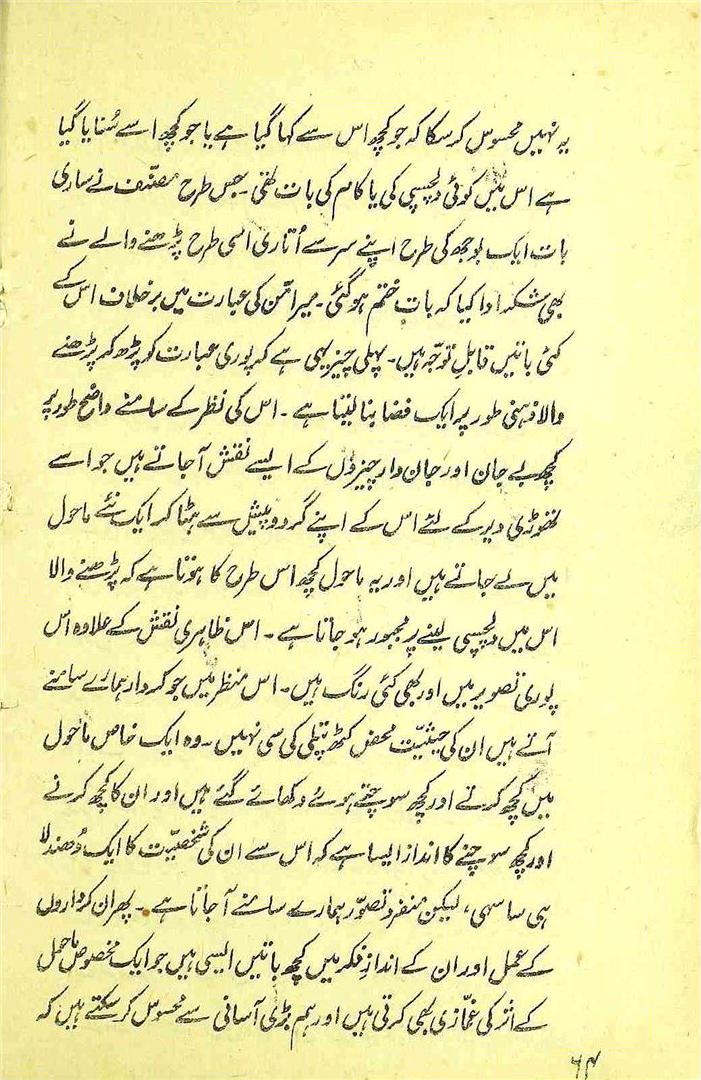 یہ نہیں محسوس کر سکا کہ جو کچھ اس سے کہا گیا ہے یا جو کچھ اسے سُنایا گیا
ہے اس میں کوئی دلچسپی کی یا کام کی بات تھی۔ جس طرح مصنّف نے ساری
بات ایک بوجھ کی طرح اپنے سر سے اُتاری اسی طرح پڑھنے والے نے
بھی شکر ادا کیا کہ بات ختم ہو گئی۔ میر امّن کی عبارت میں برخلاف اس کے
کئی باتیں قابلِ توجّہ ہیں۔ پہلی چیز یہی ہے کہ پوری عبارت کو پڑھ کر پڑھنے
والا ذہنی طور پر ایک فضا بنا لیتا ہے۔ اس کی نظر کے سامنے واضح طور پر
کچھ بے جان اور جان دار چیزوں کے ایسے نقش آ جاتے ہیں جو اسے
تھوڑی دیر کے لئے اس کے اپنے گرد و پیش سے ہٹا کر ایک نئے ماحول
میں لے جاتے ہیں اور یہ ماحول کچھ اس طرح کا ہوتا ہے کہ پڑھنے والا
اس میں دلچسپی لینے پر مجبور ہو جاتا ہے۔ اس ظاہری نقش کے علاوہ اس
پوری تصویر میں اور بھی کئی رنگ ہیں۔ اس منظر میں جو کردار ہمارے سامنے
آتے ہیں ان کی حیثیّت محض کٹھ پتلی کی سی نہیں۔ وہ ایک خاص ماحول
میں کچھ کرتے اور کچھ سوچتے ہوئے دکھائے گئے ہیں اور ان کا کچھ کرنے
اور کچھ سوچنے کا انداز ایسا ہے کہ اس سے ان کی شخصیّت کا ایک دُھندلا
ہی سا سہی، لیکن منفرد تصوّر ہمارے سامنے آ جاتا ہے۔ پھر ان کرداروں
کے عمل اور ان کے اندازِ فکر میں کچھ باتیں ایسی ہیں جو ایک مخصوص ماحول
کے اثر کی غمّازی بھی کرتی ہیں اور ہم بڑی آسانی سے محسوس کر سکتے ہیں کہ
۶۴